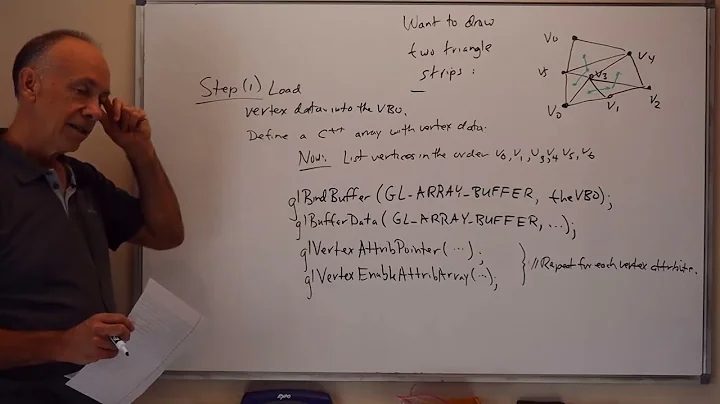 Want to draw
two triangle
strips:
Step (1) Load
vertex data into the VBO.
Define a C++ array with vertex data.
Now: List vertices in the order v0, v1, v3, v4, v5, v6
glBindBuffer(GL_ARRAY_BUFFER, theVBO);
glBufferData(GL_ARRAY_BUFFER, ...);
glVertexAttribPointer(...);
glVertexEnableAttribArray(...);
} // Repeat for each vertex attribute.
V0
V4
V5
V3
V0
V1
V2
expo